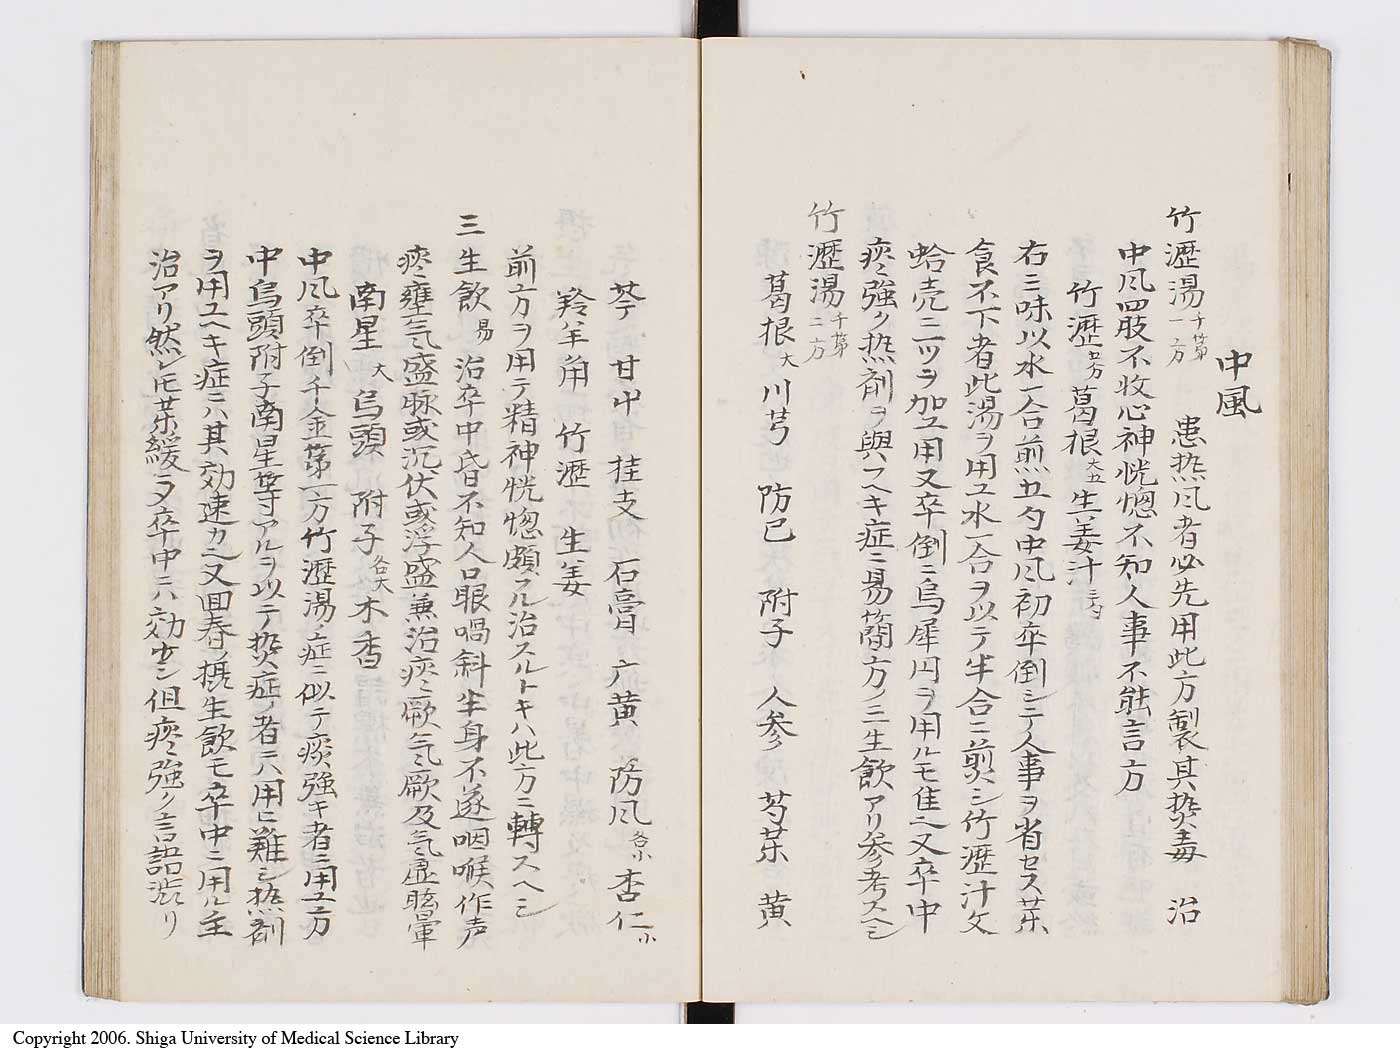 中風
竹瀝湯 千第一方 患熱风者必先用此方製其热毒 治
中风四肢不收心神恍惚不知人事不能言方
竹瀝 葛根 大五 生姜汁
右三味以水一合煎五勺中风初卒倒シテ人事ヲ省セス茱
食不下者此湯ヲ用ユ水一合ヲ以テ半合ニ煎シ竹瀝汁文
蛤売二ツヲ加エ用又卒倒ニ烏犀円ヲ用ルモ佳之又卒中
痰強ク熱剤ヲ與フヘキ症ニ易簡方ノ三生飲アリ参考スヘシ
竹瀝湯 千第二方
葛根 大 川芎 防已 附子 人参 芍茱 黄
芩 甘艸 桂支 石膏 六黄 防风 各小 杏仁 小
羚羊角 竹瀝 生姜
前方ヲ用テ精神恍惚頗フル治スルトキハ此方ニ轉スヘシ
三生飲 易 治卒中昏不知人口眼喎斜半身不遂咽喉作声
痰壅气盛脉或沉伏或浮盛兼治痰厥气厥及气虚眩暈
南星 大 烏頭 附子 各大 木香
中风卒倒千金第一方竹瀝湯ノ症ニ似テ痰強キ者ニ用ユ方
中烏頭附子南星等アルヲ以テ热症ノ者ニハ用ヒ難シ熱剤
ヲ用ユヘキ症ニハ其効速カ之又回春ノ摂生飲モ卒中ニ用ル主
治アリ然レ𪜈茱緩ヲ卒中ニハ効少シ但痰強ク言語渋リ
Copyright 2006. Shiga University of Medical Science Library